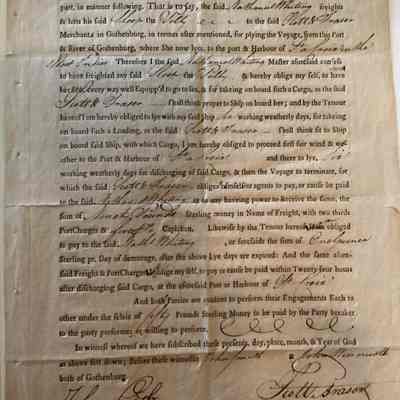 part, in manner following. That is to say, the said Nathaniel Whiting freights
and lets his said Sloop the to the said Scott & Fraser
Merchants in Gothenburg, in termes after mentioned, for plying the Voyage, from the Port
& River of Gothenburg, where She now lyes, to the port & Harbour of
West Indies Therefore I the said Nathaniel Whiting Master aforesaid
to have freighted my said Sloop the & hereby oblige my self, to have
her every way well Equipp'd to go to sea, & for taking on board such a Cargo, as the said
Scott & Fraser Shall think proper to Ship on board her; and by the Tenour
hereof I am hereby obliged to lye with my said Ship working weatherly days, for taking
on board such a Loading, as the said Scott & Fraser Shall think fit to Ship
on board said Ship, with which Cargo, I am hereby obliged to proceed first fair wind &
other to the Port & Harbour of and there to lye,
working weatherly days for discharging of said Cargo, & then the Voyage to terminate, for
which the said Scott & Fraser obliges agents to pay, or cause be paid
to the said or to any having power to Receive the same, the
sum of Pounds Sterling money in Name of Freight, with two third
PortCharges & Caplaken. Likewise by the Tenour hereof obliged
to pay to the said Nath Whiting or foresaids the sum of
Sterling pr. Day of demurage, after the above lye days are expired: And the same
said Freight & PortCharges oblige my self, to pay or cause be paid within Twenty four hours
after discharging said Cargo, at the aforesaid Port or Harbour of
And both Parties are content to perform their Engagements Each to
other under the failzie of fifty Pounds Sterling Money to be paid by the Party breaker
to the party performer, willing to perform.
In witness whereof we have subscribed these presents, day, place, month, & Year of God
as above sett down; Before these witnesses John Smith & John
both of Gothenburg.
Scott & Fraser